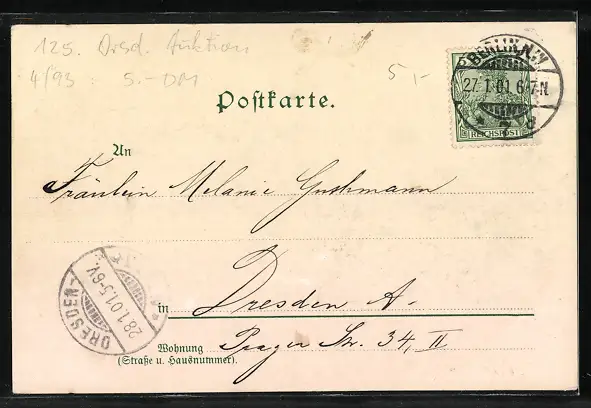 125. Dresd. Auktion
4/93 5.-DM
5,-
BERLIN N.W.
27.1.01.6-7N.
* 7
5
REICHSPOST
Postkarte.
An
Fräulein Melanie
in Dresden A.
Prager Str. 34, II
Wohnung
(Straße u. Hausnummer).
DRESDEN
28.1.01.5-6V.